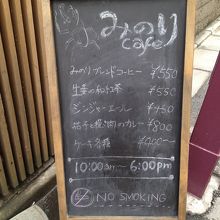 みのり
cafe
みのりブレンドコーヒー ¥550
生姜の和紅茶 ¥550
ジンジャーエール ¥450
茄子と挽肉のカレー ¥800
ケーキ各種
10:00am ~ 6:00pm
NO SMOKING